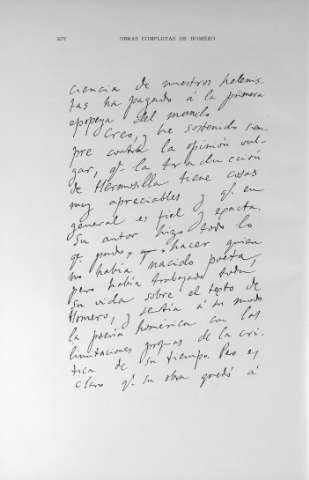 XIV OBRAS COMPLETAS DE HOMERO
ciencia de nuestros helenis
tas ha pagado á la primera
epopeya del mundo
Creo, y he sostenido siem
pre contra la opinión vul-
gar, qᵉ la traducción
de Hermosilla tiene cosas
muy apreciables y qᵉ en
general es fiel y exacta.
Su autor hizo todo lo
qᵉ pudo, hacer quien
no había nacido poeta,
pero había trabajado toda
su vida sobre el texto de
Homero, y sentía á su modo
la poesía homérica con las
limitaciones propias de la crí-
tica de su tiempo. Pero es
claro qᵉ su obra quedó á